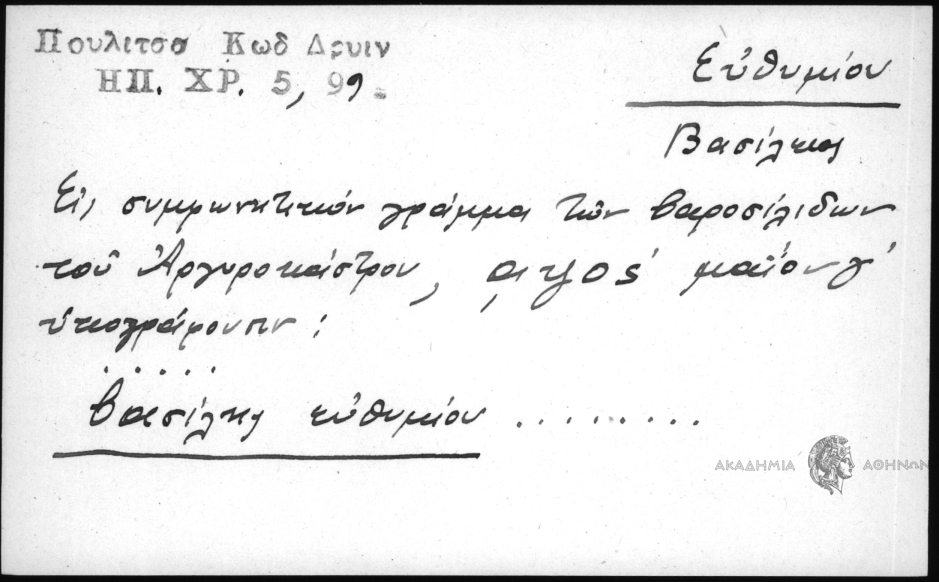 Πουλιτσα Κωδ Δρυιν
ΗΠ. ΧΡ. 5, 99
Εὐθυμίου
Βασίλης
Εἰς συμφωνητικόν γράμμα τῶν βαροσίλιδων
τοῦ Ἀργυροκάστρου, αψος΄ μαΐου γ΄
ὑπογράφουσιν:
. . . . .
βασίλης εὐθυμίου . . . . . . . .
ΑΚΑΔΗΜΙΑ ΑΘΗΝΩΝ